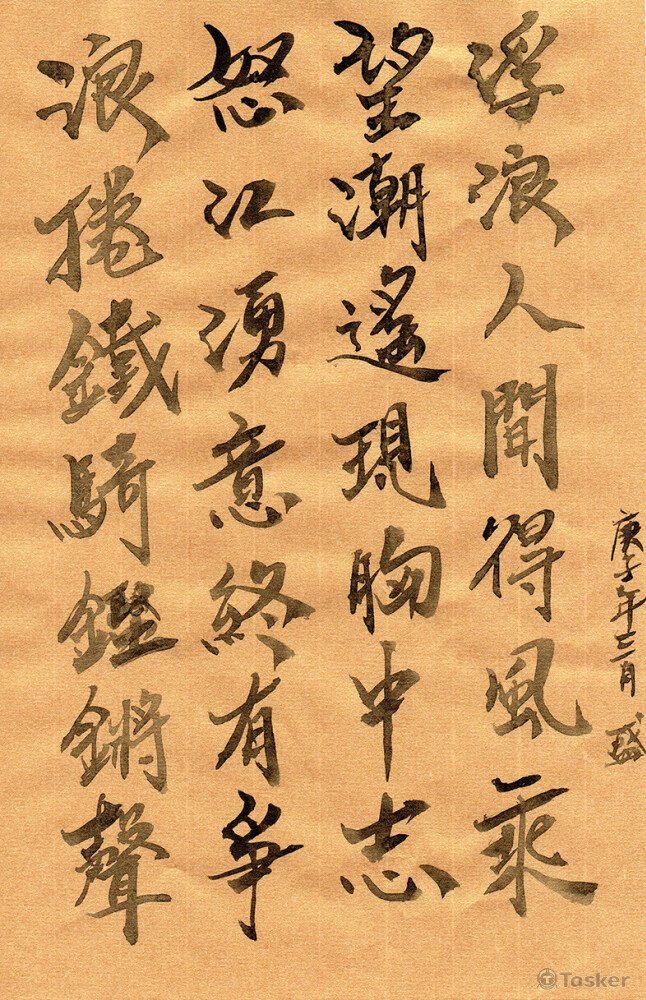 庚子年十二月 盛
浮浪人間得風乘
望潮遙現胸中志
怒江湧意終有爭
浪捲鐵騎鏗鏘聲
Tasker